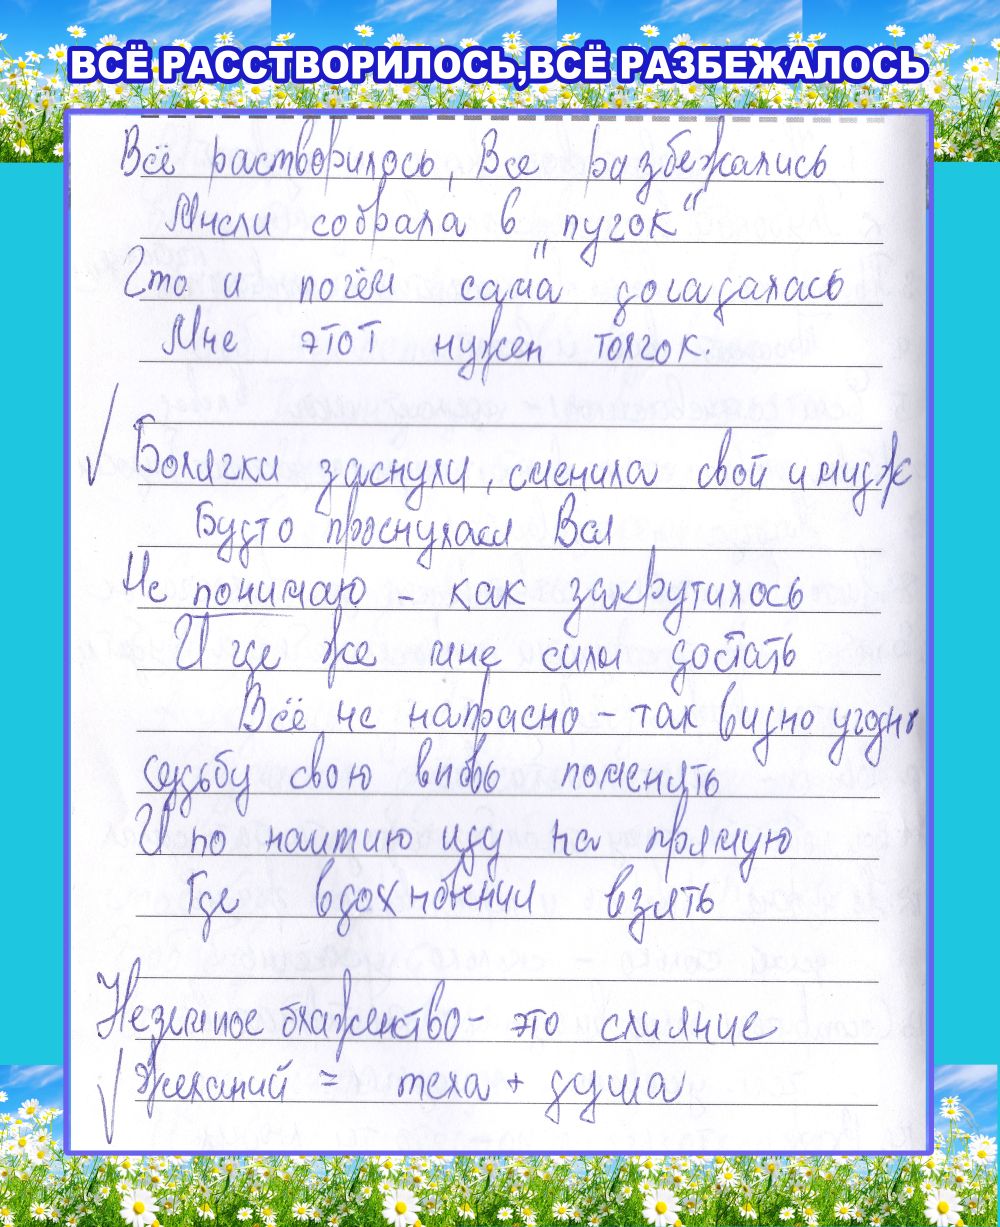 ВСЁ РАССТВОРИЛОСЬ,ВСЁ РАЗБЕЖАЛОСЬ
Всё растворилось, Все разбежались
Мысли собрала в „пучок“
Что и почём сама догадалась
Мне этот нужен толчок.
Болячки заснули, сменила свой имидж
Будто проснулася Вся
Не понимаю – как закрутилось
И где же мне силы достать
Всё не напрасно – так видно угодно
судьбу свою вновь поменять
И по наитию иду на прямую
Где вдохновнии взять
Неземное блаженство – это слияние
Желаний = тела + душа